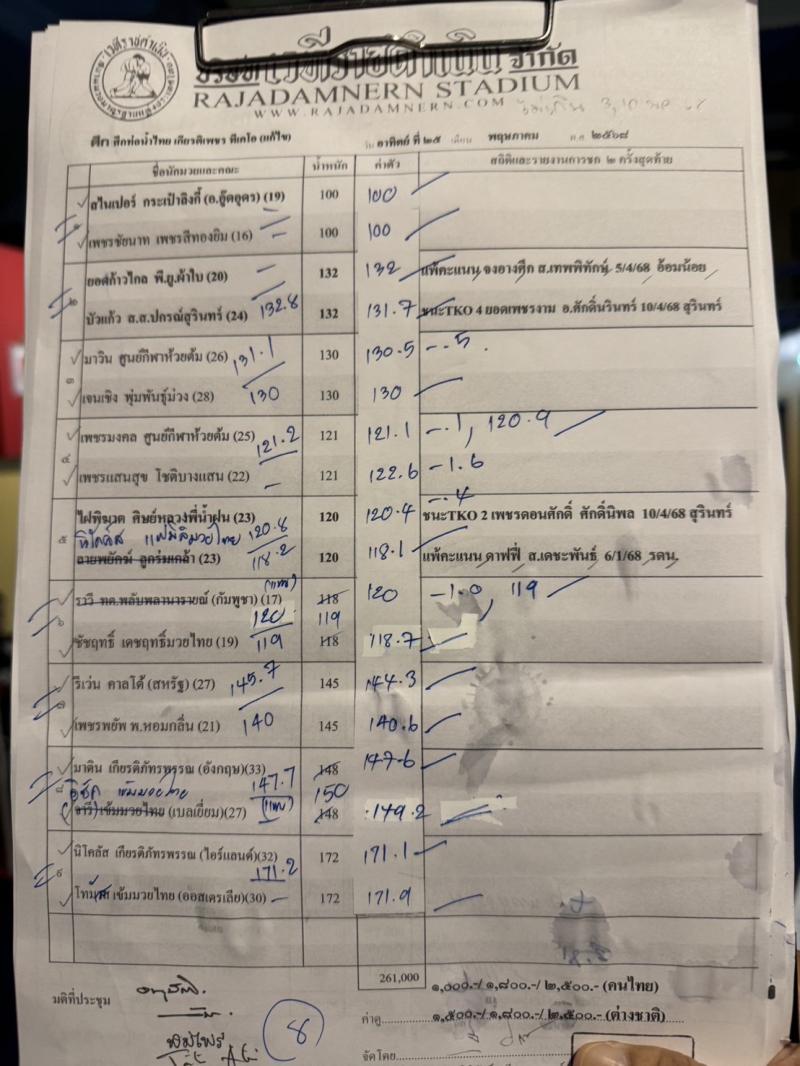 บริษัท เวทีราชดำเนิน จำกัด
RAJADAMNERN STADIUM
WWW.RAJADAMNERN.COM
ศึก ศึกท่อน้ำไทย เกียรติเพชร ทีเคโอ (แก้ไข) วัน อาทิตย์ ที่ ๒๕ เดือน พฤษภาคม พ.ศ. ๒๕๖๘
ชื่อนักมวยและคณะ น้ำหนัก ค่าตัว สถิติและรายงานการชก ๒ ครั้งสุดท้าย
สไนเปอร์ กระเป๋าลิงกี้ (อ.อู๊ดอุดร) (19) 100 100
๑
เพชรชัยนาท เพชรสีทองยิม (16) 100 100
ยอดก้าวไกล พี.ยู.ผ้าใบ (20) 132 132 แพ้คะแนน จงอางศึก ส.เทพพิทักษ์ 5/4/68 อ้อมน้อย
๒
บัวแก้ว ส.ส.ปกรณ์สุรินทร์ (24) 132.8 132 131.7 ชนะTKO 4 ยอดเพชรงาม อ.ศักดิ์นรินทร์ 10/4/68 สุรินทร์
มาวิน ศูนย์กีฬาห้วยต้ม (26) 131.1 130 130.5 -.5
๓
เจนเชิง พุ่มพันธุ์ม่วง (28) 130 130 130
เพชรมงคล ศูนย์กีฬาห้วยต้ม (25) 121.2 121 121.1 -.1, 120.9
๔
เพชรแสนสุข โชติบางแสน (22) 121 122.6 -1.6
-.4
ไฝพิฆาต ศิษย์หลวงพี่น้ำฝน (23) 120.8 120 120.4 ชนะTKO 2 เพชรดอนศักดิ์ ศักดิ์นิพล 10/4/68 สุรินทร์
๕ นิโคลัส แฟมิลีมวยไทย
ลายพยัคฆ์ ลูกร่มเกล้า (23) 118.2 120 118.1 แพ้คะแนน ดาฟฟี่ ส.เดชะพันธ์ 6/1/68 รดน.
(แทน)
ราวี ทด.พลับพลานารายณ์ (กัมพูชา) (17) 118 120 -1.0, 119
๖ 120 119
ชัชฤทธิ์ เดชฤทธิ์มวยไทย (19) 119 118 118.7
ริเว่น คาลโด้ (สหรัฐ) (27) 145.7 145 144.3
๗
เพชรพยัพ พ.หอมกลิ่น (21) 140 145 140.6
มาดิน เกียรติภัทรพรรณ (อังกฤษ)(33) 148 147.6
๘ 147.7 150
(แทน)
เข้มมวยไทย (เบลเยี่ยม)(27) 148 149.2
นิโคลัส เกียรติภัทรพรรณ (ไอร์แลนด์)(32) 172 171.1
๙ 171.2
โทมัส เข้มมวยไทย (ออสเตรเลีย)(30) 172 171.9
261,000 ๑,๐๐๐.-/ ๑,๘๐๐.-/ ๒,๕๐๐.- (คนไทย)
มติที่ประชุม
ค่าดู ๑,๕๐๐.-/ ๑,๘๐๐.-/ ๒,๕๐๐.- (ต่างชาติ)
8
จัดโดย